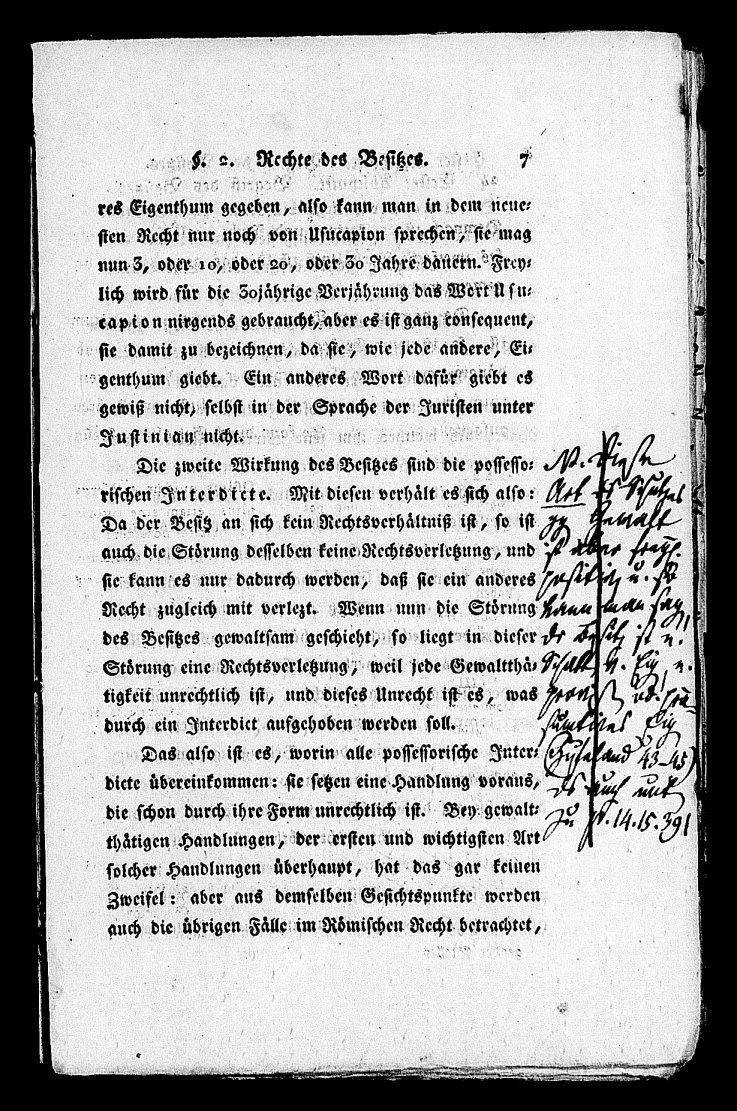 §. 2. Rechte des Besitzes. 7
res Eigenthum gegeben, also kann man in dem neue-
sten Recht nur noch von Usucapion sprechen, sie mag
nun 3, oder 10, oder 20, oder 30 Jahre dauern. Frey-
lich wird für die 30jährige Verjährung das Wort Usu-
capion nirgends gebraucht, aber es ist ganz consequent,
sie damit zu bezeichnen, da sie, wie jede andere, Ei-
genthum giebt. Ein anderes Wort dafür giebt es
gewiß nicht, selbst in der Sprache der Juristen unter
Justinian nicht.
Die zweite Wirkung des Besitzes sind die possesso-
rischen Interdicte. Mit diesen verhält es sich also:
Da der Besitz an sich kein Rechtsverhältniß ist, so ist
auch die Störung desselben keine Rechtsverletzung, und
sie kann es nur dadurch werden, daß sie ein anderes
Recht zugleich mit verlezt. Wenn nun die Störung
des Besitzes gewaltsam geschieht, so liegt in dieser
Störung eine Rechtsverletzung, weil jede Gewaltthä-
tigkeit unrechtlich ist, und dieses Unrecht ist es, was
durch ein Interdict aufgehoben werden soll.
Das also ist es, worin alle possessorische Inter-
dicte übereinkommen: sie setzen eine Handlung voraus,
die schon durch ihre Form unrechtlich ist. Bey gewalt-
thätigen Handlungen, der ersten und wichtigsten Art
solcher Handlungen überhaupt, hat das gar keinen
Zweifel: aber aus demselben Gesichtspunkte werden
auch die übrigen Fälle im Römischen Recht betrachtet,
Art Schutzes
Gewalt
ist aber
positiv u. so
kann man sag
Besitz ist
sumtives Eig
(Hufeland 43-45)
auch unt
zu p. 14. 15. 391